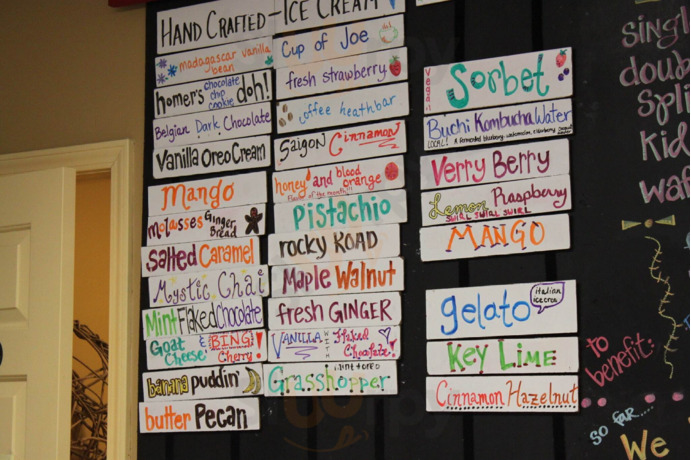 HAND CRAFTED
madagascar vanilla
bean
homer's chocolate
chip
cookie doh!
Belgian Dark Chocolate
Vanilla Oreo Cream
Mango
molasses Ginger
Bread
Salted Caramel
Mystic Chai
Mint Flaked chocolate
Goat
Cheese & BING!
Cherry!
banana puddin'
butter Pecan
ICE CREAM
Cup of Joe
fresh strawberry
coffee heathbar
Saigon Cinnamon
honey and blood
orange
flavor of the month!!!
Pistachio
rocky ROAD
Maple Walnut
fresh GINGER
VANILLA WITH Flaked
Chocolate!
mint + oreo
Grasshopper
Vegan
Sorbet
Buchi Kombucha Water
LOCAL!
Verry Berry
Lemon Raspberry
SWIRL SWIRL SWIRL
MANGO
gelato italian
ice crea
Key Lime
Cinnamon Hazelnut
Singl
doub
Spli
Kid
waf
to
benefit:
so far...
We